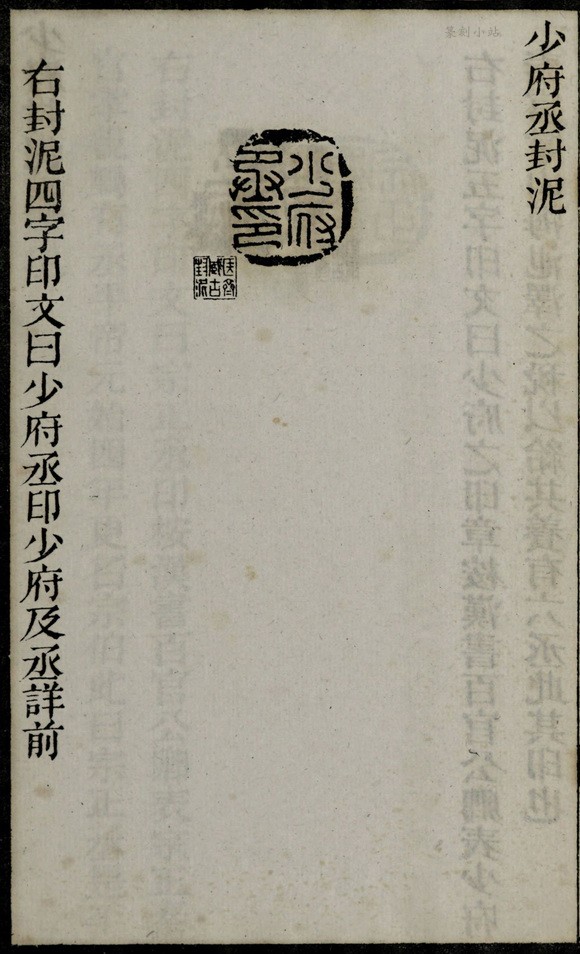 篆刻小站
少府丞封泥
少府
丞印
右封泥四字印文曰少府丞印少府及丞詳前